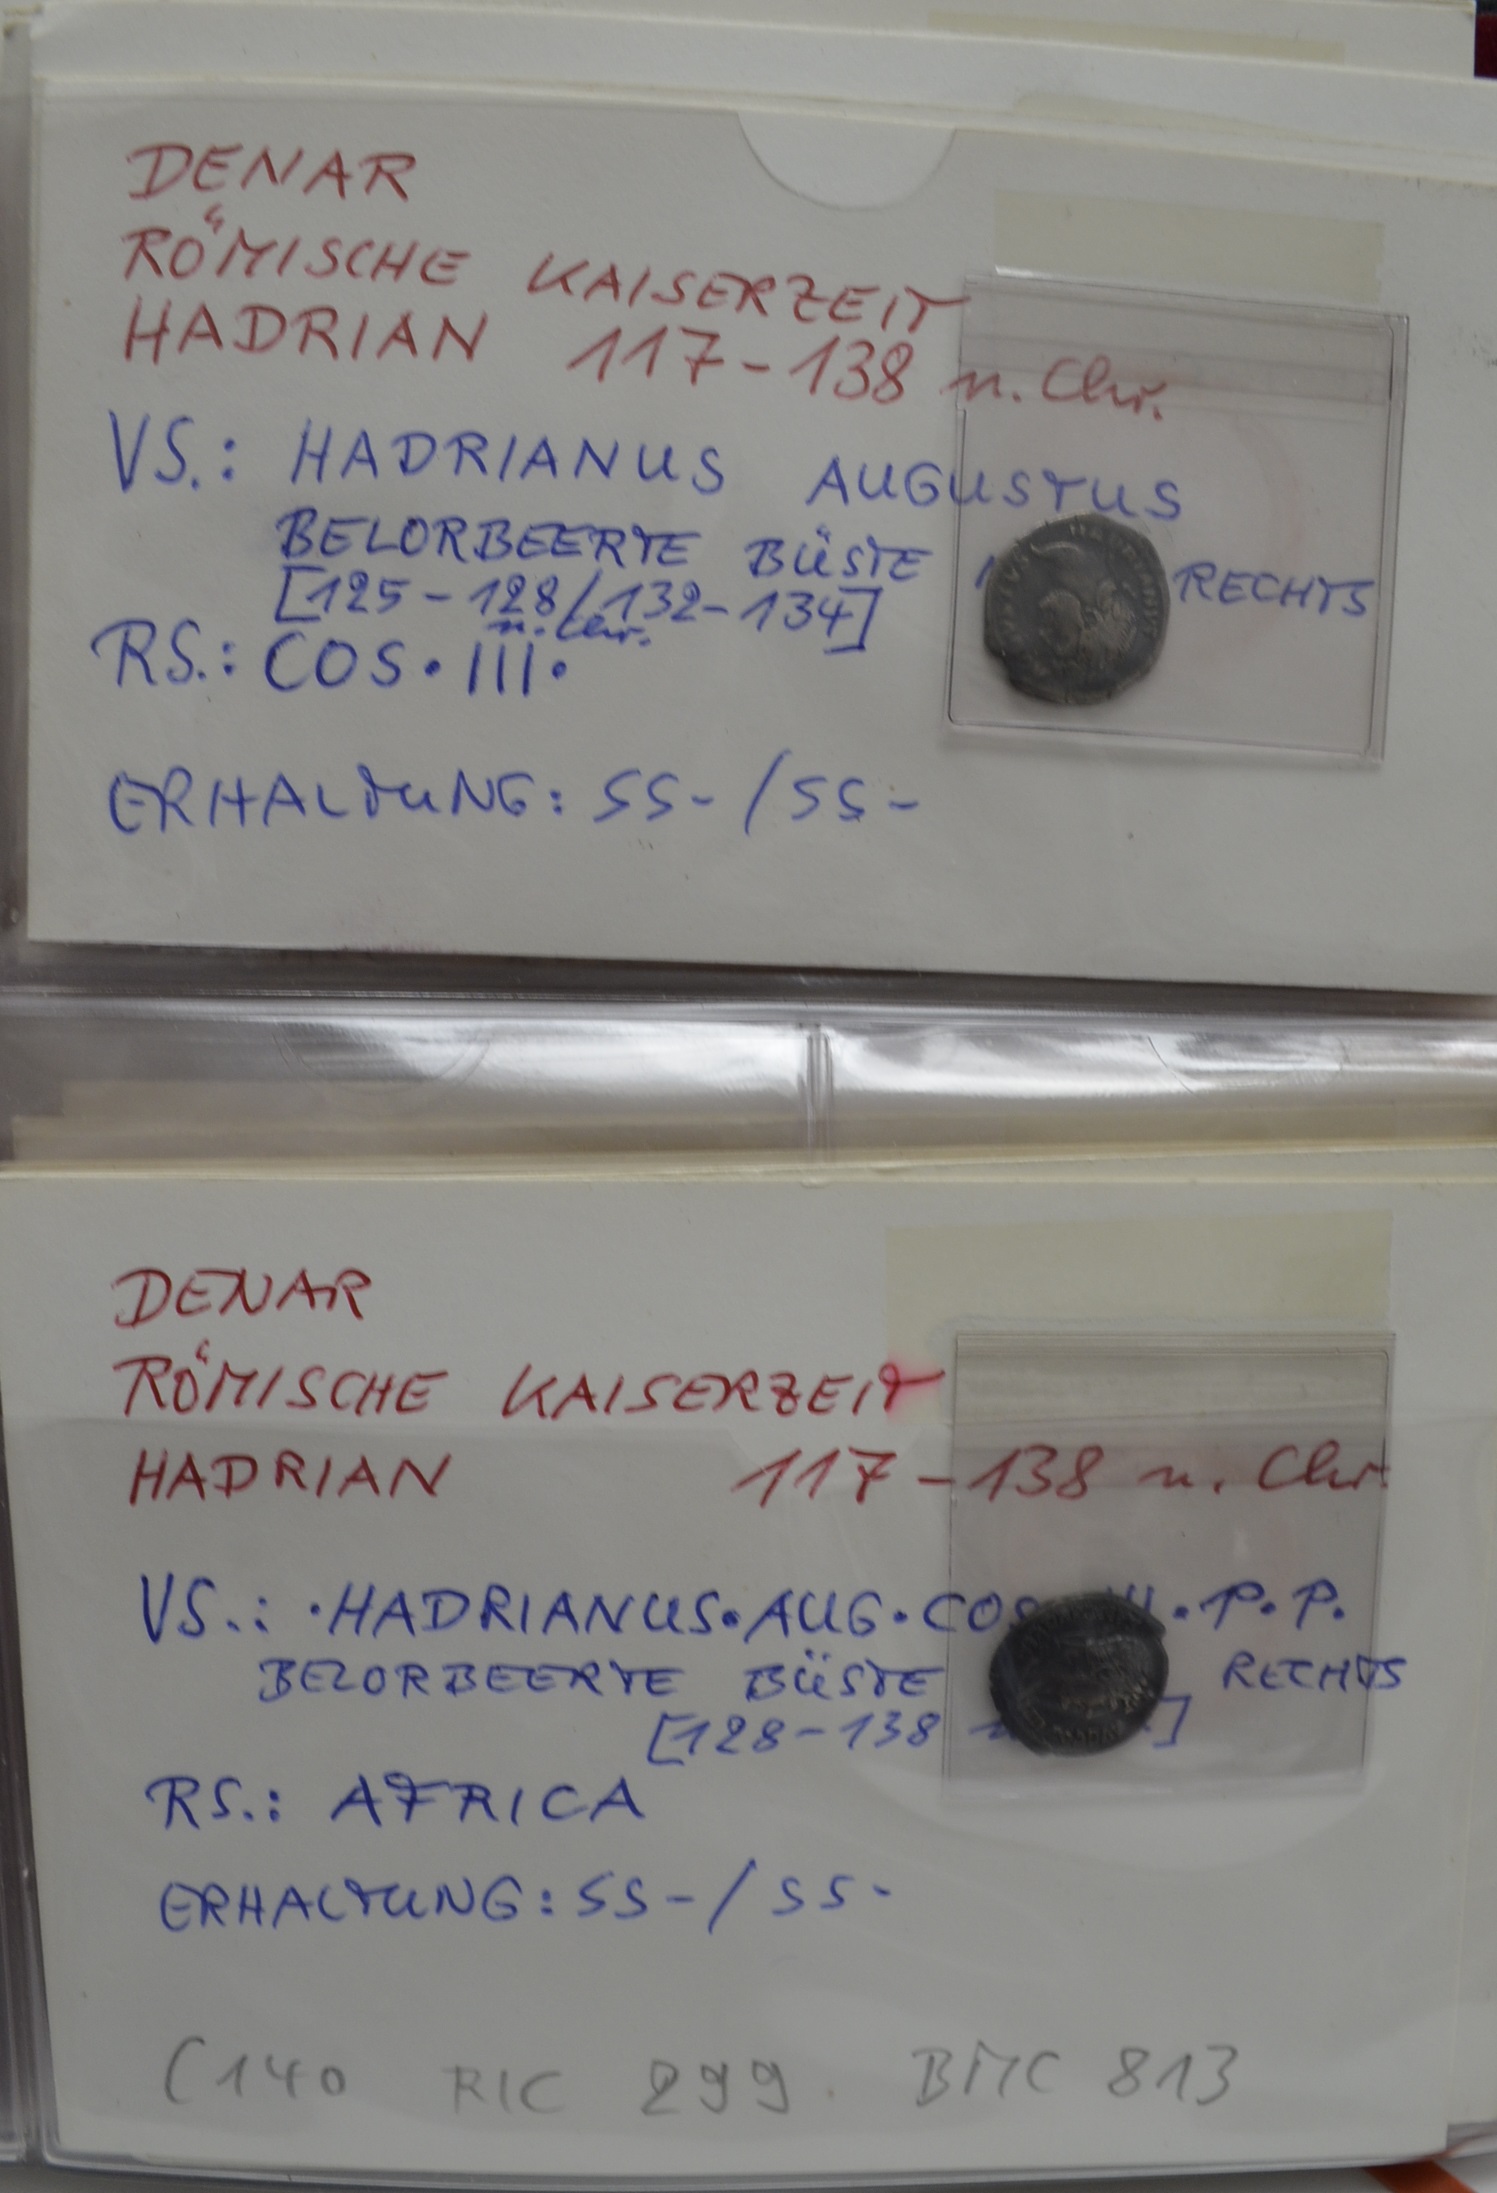 DENAR
RÖMISCHE KAISERZEIT
HADRIAN 117-138 n. Chr.
VS.: HADRIANUS AUGUSTUS
BELORBEERTE BÜSTE RECHTS
[125-128/132-134]
n. Chr.
RS.: COS·III·
ERHALTUNG: SS-/SS-
DENAR
RÖMISCHE KAISERZEIT
HADRIAN 117-138 n. Chr.
VS.: ·HADRIANUS·AUG·COS ·P·P.
BELORBEERTE BÜSTE RECHTS
[128-138 ]
RS.: AFRICA
ERHALTUNG: SS-/SS-
C140 RIC 299. BMC 813